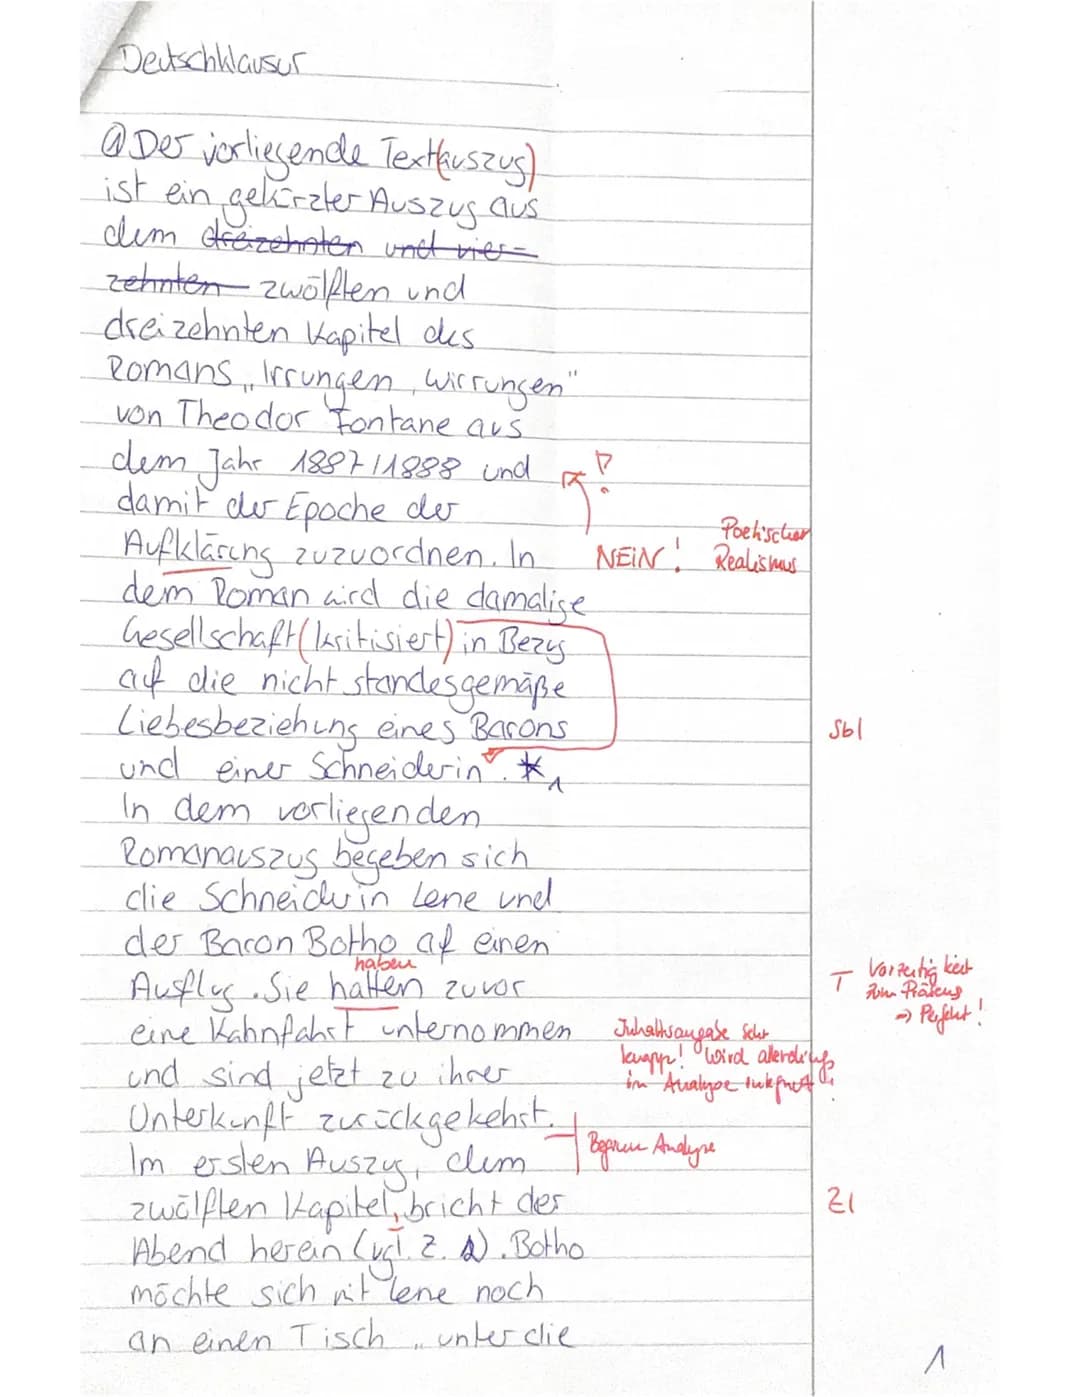 Deutschklausur
① Der vorliegende Text(auszug)
ist ein gekürzter Auszug aus
dem dreizehnten und vier-
zehnten zwölften und
dreizehnten Kapitel des
Romans „Irrungen, Wirrungen"
von Theodor Fontane aus
dem Jahr 1887/1888 und
?
damit der Epoche der
Aufklärung zuzuordnen. In
NEIN!
Poetischer
Realismus
dem Roman wird die damalige
Gesellschaft (kritisiert) in Bezug
auf die nicht standesgemäße
Liebesbeziehung eines Barons
Sbl
und einer Schneiderin. *1
In dem vorliegenden
Romanauszug begeben sich
die Schneiderin Lene und
der Baron Botho auf einen
haben
Ausflug. Sie hatten zuvor
T Vorzeitigkeit
zum Präsens
=> Perfekt!
eine Kahnfahrt unternommen
und sind jetzt zu ihrer
Inhaltsangabe sehr
knapp! Wird allerdings
im Analyse
Unterkunft zurückgekehrt.
Beginn Analyse
Im ersten Auszug, dem
zwölften Kapitel, bricht der
Zl
Abend herein (vgl. Z. 2). Botho
möchte sich mit Lene noch
an einen Tisch „unter die
1